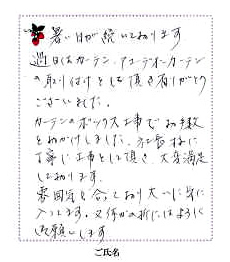 暑い日が続いております
過日はカーテン、アコーデオンカーテン
の取り付けをして頂き有りがとう
ございました。
カーテンのボックス工事でお手数
をおかけしました。社長様に
丁寧に工事をして頂き大変満足
しております。
雰囲気も合っており大いに気に
入ってます。又何かの折にはよろしく
お願いします
ご氏名